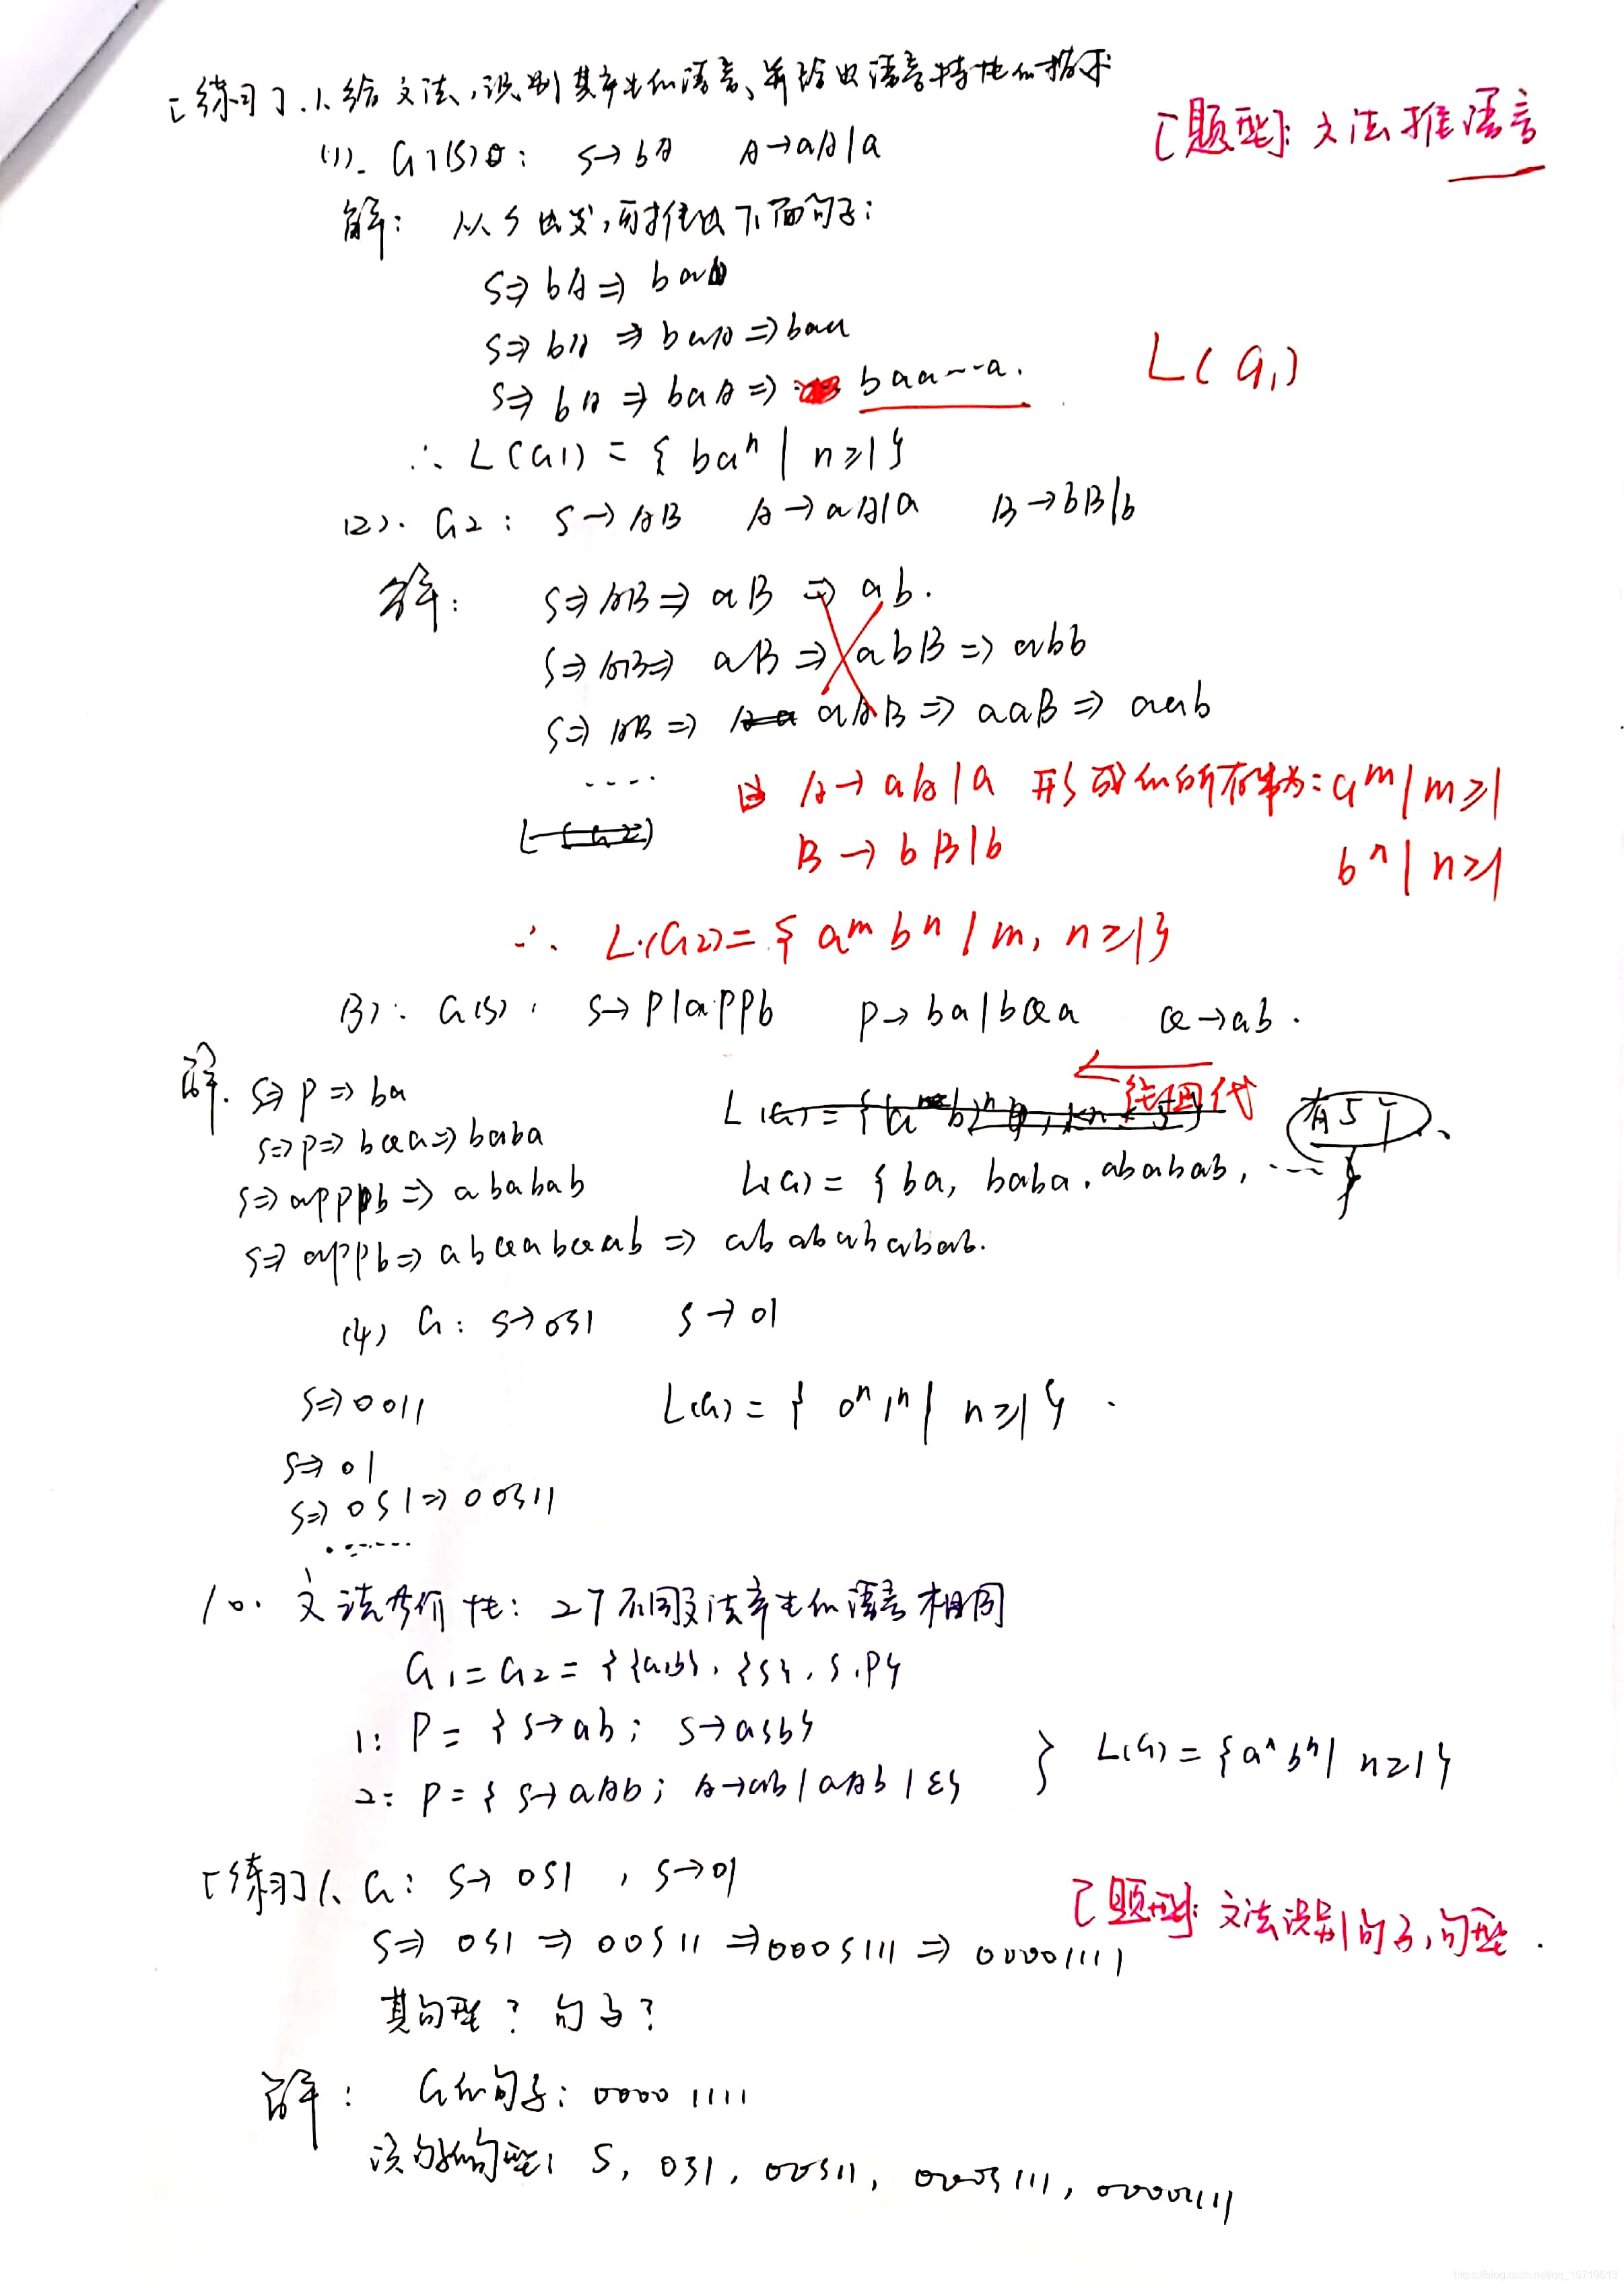 [练习].1.给文法,识别其产生的语言、并给出语言特性的描述
[题型]:文法推语言
(1). G1(S): S→bA A→aA|a
解: 从S出发,可推出下面句子:
S⇒bA⇒ba
S⇒bA⇒baA⇒baa
S⇒bA⇒baA⇒ baa--a.
L(G1)
∴ L(G1) = { baⁿ | n≥1}
(2). G2: S→AB A→aA|a B→bB|b
解: S⇒AB⇒aB⇒ab.
S⇒AB⇒ aB⇒abB⇒abb
S⇒AB⇒ aAB⇒aaB⇒aab
....
由 A→aA|a 形成的所有串为:aᵐ|m≥1
L(G2)
B→bB|b bⁿ|n≥1
∴ L(G2)={ aᵐbⁿ|m, n≥1}
(3). G(S): S→P|aPPb P→ba|bQa Q→ab.
解. S⇒P⇒ba
往回代
S⇒P⇒bQa⇒baba
有5个、
S⇒aPPb⇒ababab
L(G) = { ba, baba, ababab, ---}
S⇒aPPb⇒abQabQab⇒ababababab.
(4) G: S→0S1 S→01
S⇒0011
L(G) = { 0ⁿ1ⁿ| n≥1}.
S⇒01
S⇒0S1⇒00S11
......
10. 文法等价性: 2个不同文法产生的语言相同
G₁=G₂={{a,b}, {S}, S, P}
1: P={S→ab; S→aSb}
2: P={S→aAb; A→ab|aAb|ε}
} L(G)={aⁿbⁿ| n≥1}
[练习]1、G: S→0S1 , S→01
[题型]:文法识别句子,句型.
S⇒0S1⇒00S11⇒000S111⇒00001111
其句型? 句子?
解: G的句子: 00001111
该句子的句型: S, 0S1, 00S11, 000S111, 00001111
https://blog.csdn.net/qq_15719613